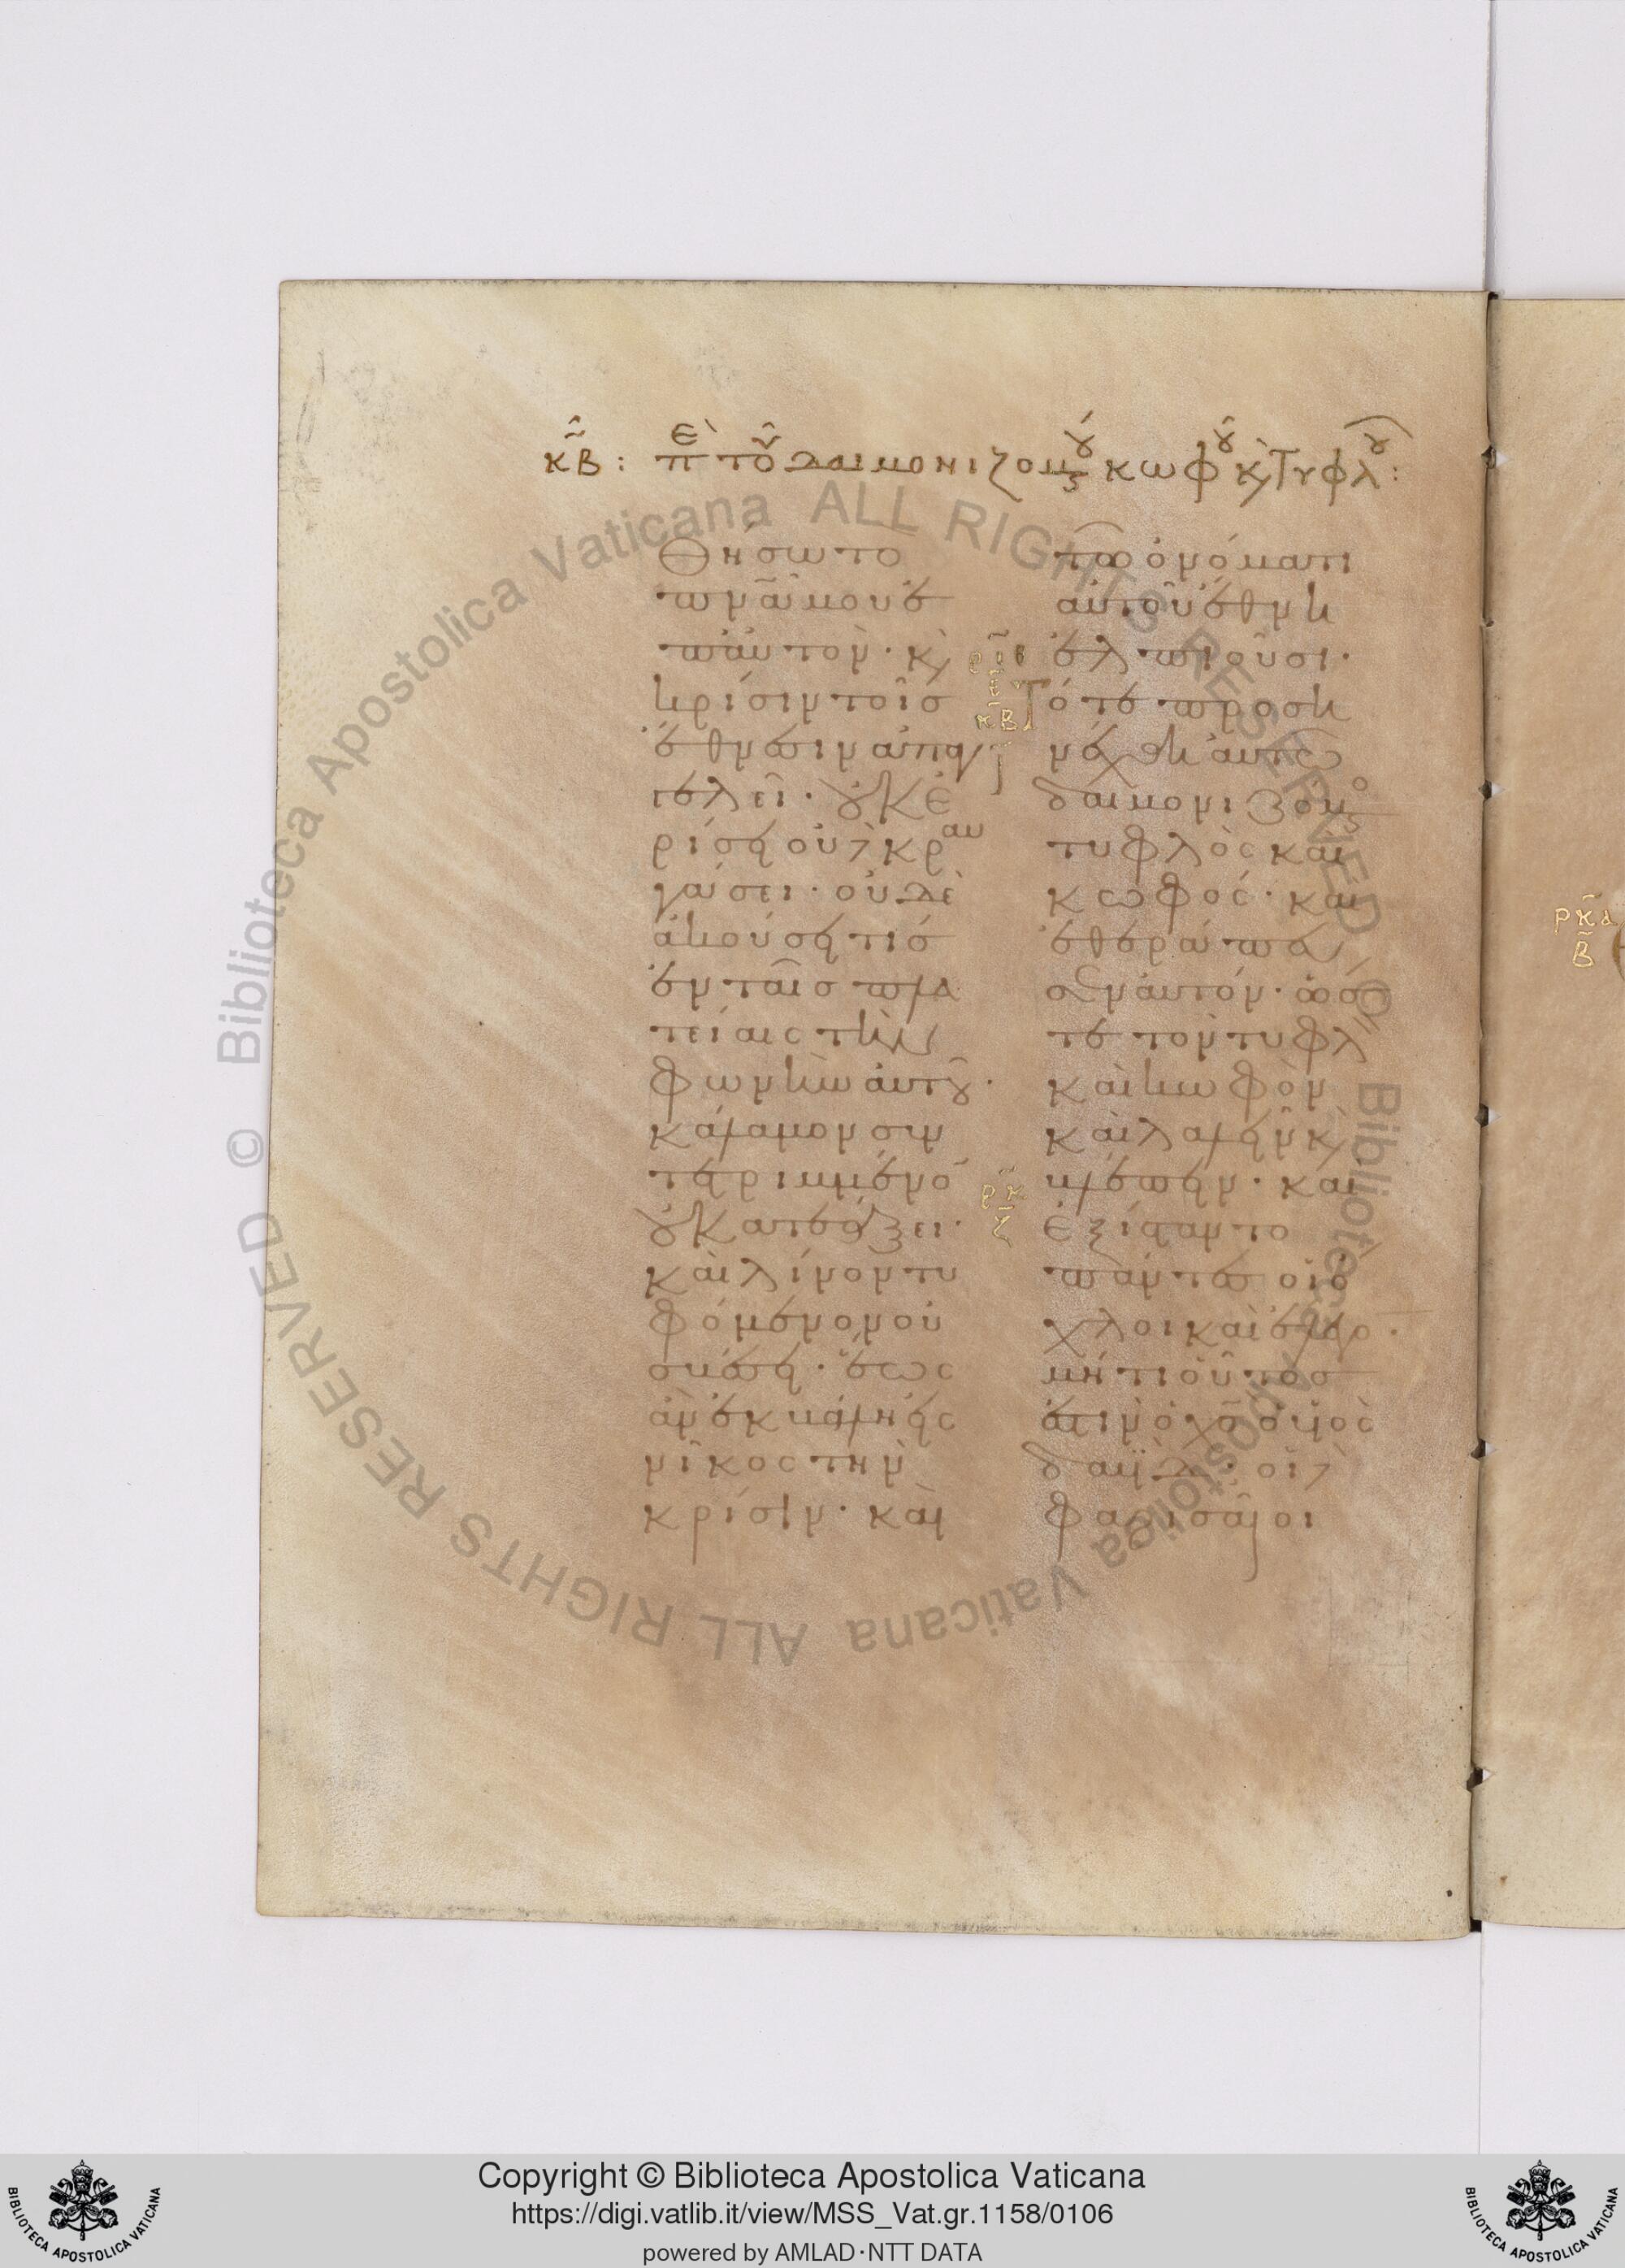 κβ: πε τοῦ δαιμονιζομου κωφοῦ κ τυφλοῦ:
Θήσω το
πνᾶ μου ἐ
π αὐτὸν· κ
κρίσιν τοῖσ
ἔθνεσιν ἀπαγ
γελεῖ· οὐκ ἐ
ρίσει οὐδὲ κραυ
γάσει· οὐδὲ
ἀκούσει τισ
ἐν ταῖσ πλα
τείαις τὴν
φωνὴν αὐτοῦ·
κάλαμον συν
τετριμμένο
οὐ κατεάξει·
καὶ λίνον τυ
φόμενον οὐ
σβέσει· ἕως
ἂν ἐκβάλη εἰς
νῖκος τὴν
κρίσιν· καὶ
τῶ ὀνόματι
αὐτοῦ ἔθνη
ἐλπιοῦσι·
ριθ
κβ
Τότε προση
νέχθη αὐτῶ
δαιμονιζόμο
τυφλὸς καὶ
κωφός· καὶ
ἐθεράπευ
σεν αὐτόν· ὥσ
τε τὸν τυφλ
καὶ κωφὸν
καὶ λαλεῖν κ
βλέπειν· καὶ
ρκ
ἐξίσταντο
πάντες οἱ ὄ
χλοι καὶ ἔλεγο·
μήτι οὗτοσ
ἐστιν ὁ χς ὁ υἱὸς
δαυίδ· οἱ δ
φαρισαῖοι
ρκα
β
© Biblioteca Apostolica Vaticana ALL RIGHTS RESERVED © Biblioteca Apostolica Vaticana ALL RIGHTS RESERVED
Copyright © Biblioteca Apostolica Vaticana
https://digi.vatlib.it/view/MSS_Vat.gr.1158/0106
powered by AMLAD·NTT DATA
BIBLIOTECA APOSTOLICA VATICANA
BIBLIOTECA APOSTOLICA VATICANA